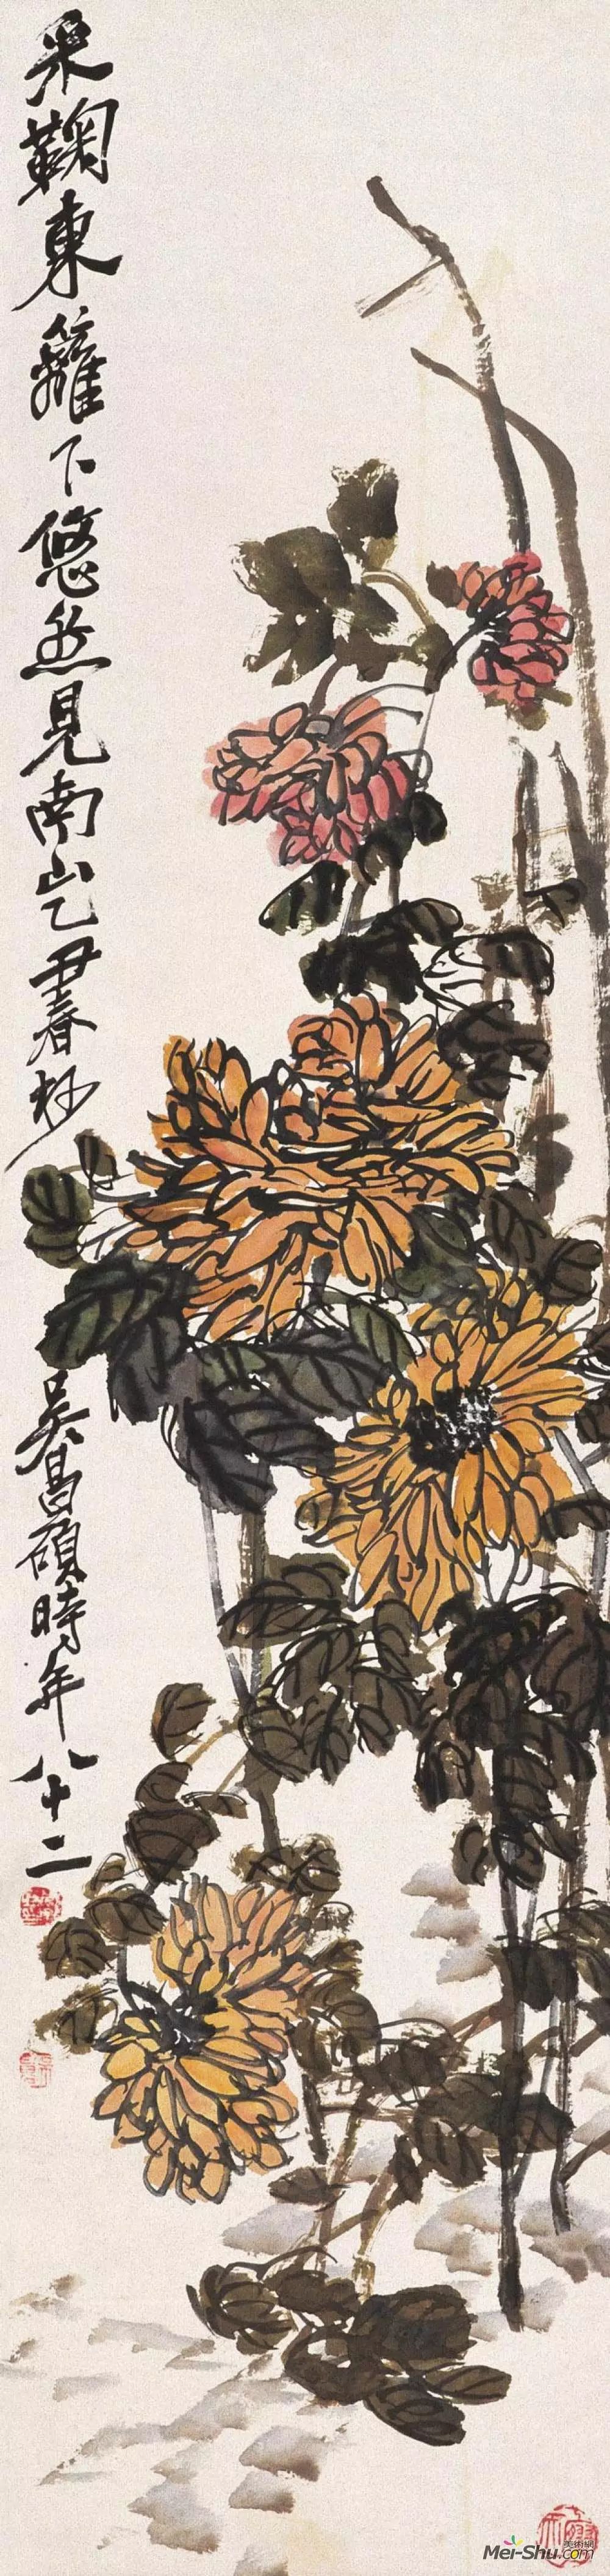 采鞠東籬下悠然見南山乙丑春杪
吳昌碩時年八十二
美術網
Mei-Shu.com